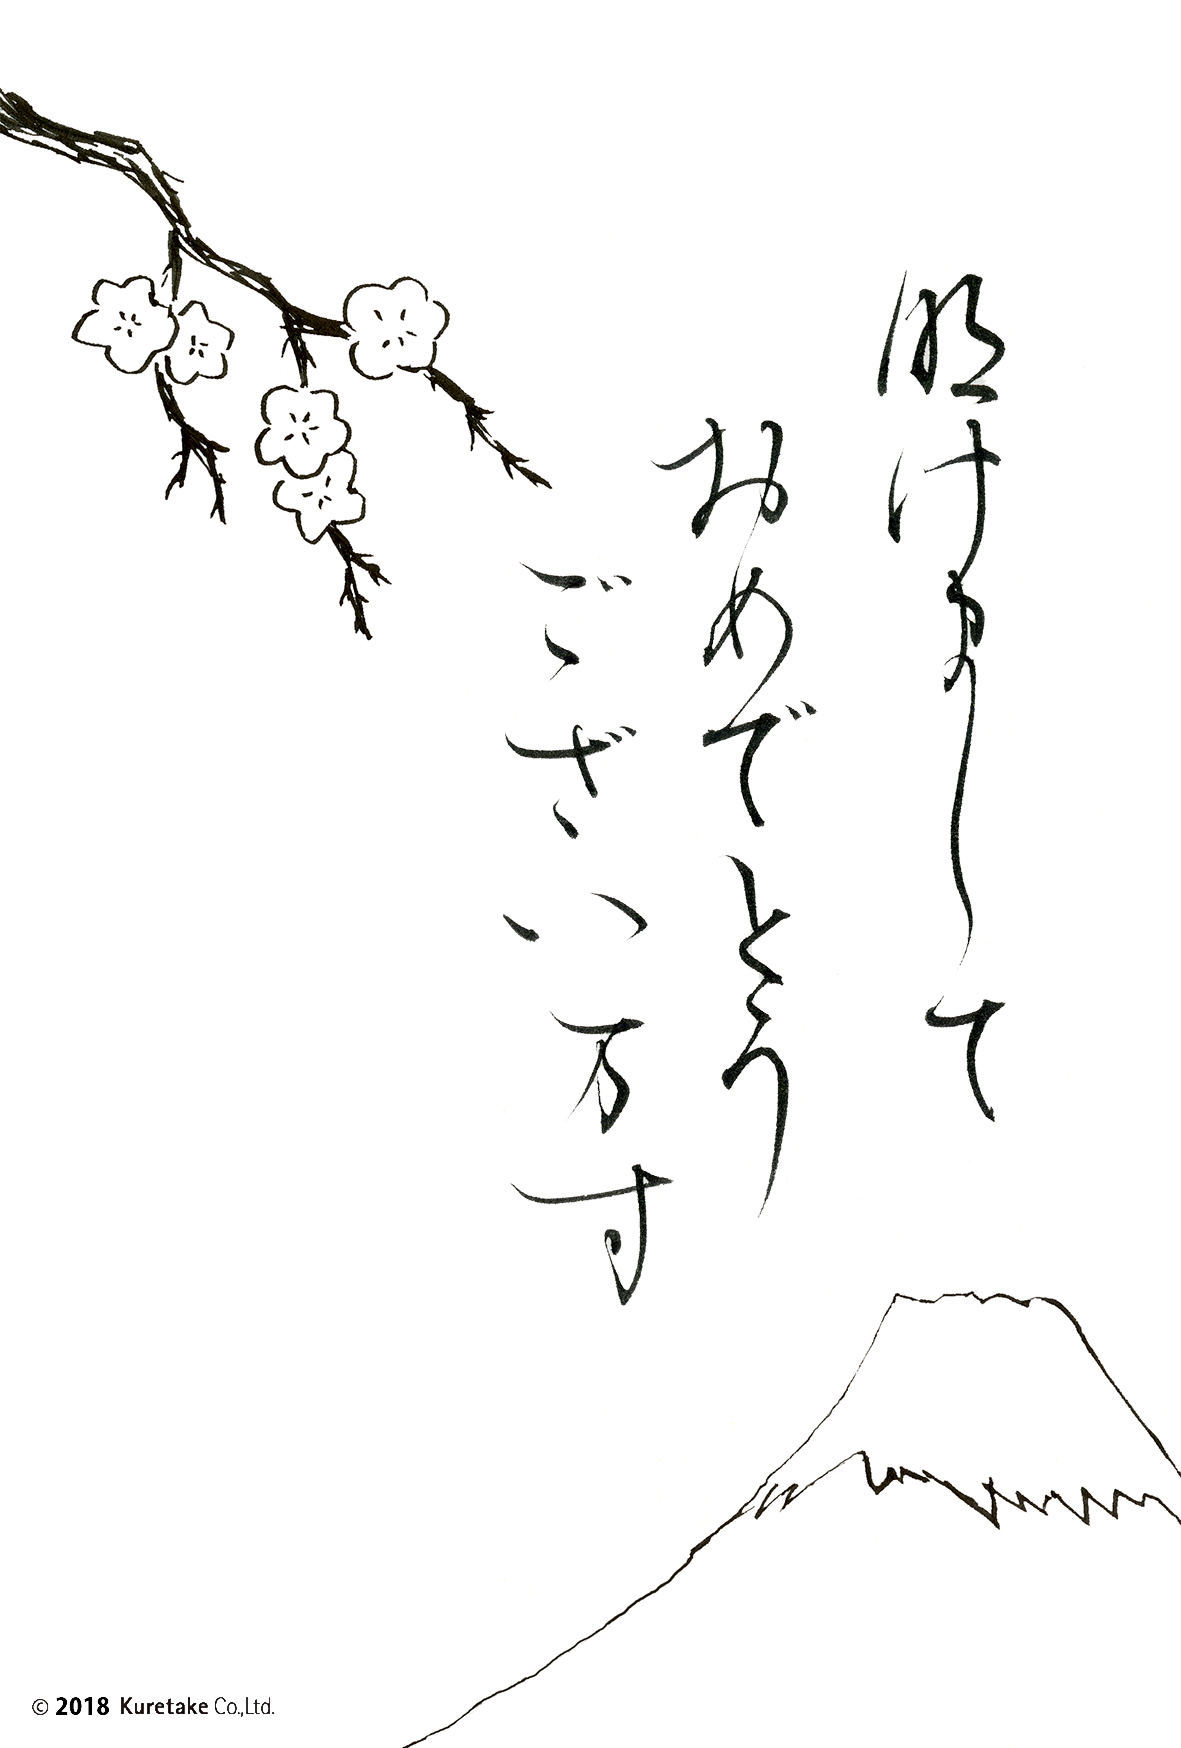 明けまして
おめでとう
ございます
© 2018 Kuretake Co.,Ltd.